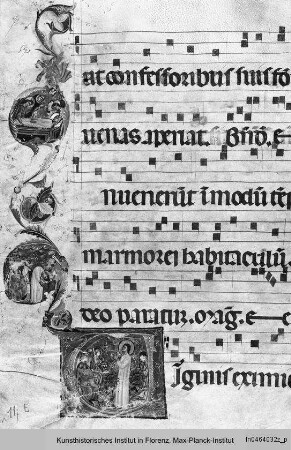 ut confessoribus suis fo
uenas. apenat.
nuenerūt ī modū tē
marmorei habitaculū.
deo paratur. orag. e
Iginis eximi
11, E
Kunsthistorisches Institut in Florenz, Max-Planck-Institut fln0464032z_p